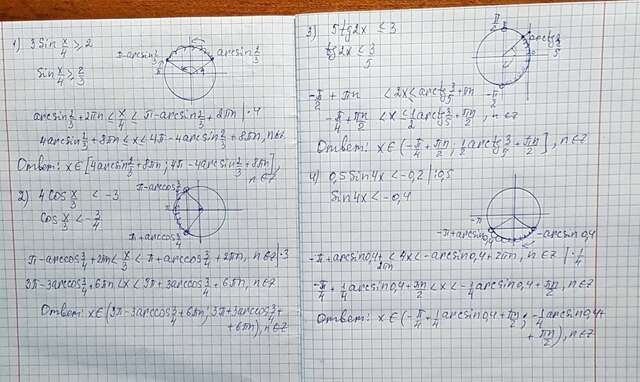 1) 3 sin x/4 ⩾ 2
sin x/4 ⩾ 2/3
π - arcsin 2/3
arcsin 2/3
arcsin 2/3 + 2πn ≤ x/4 ≤ π - arcsin 2/3 + 2πn | · 4
4 arcsin 2/3 + 8πn ≤ x ≤ 4π - 4 arcsin 2/3 + 8πn, n∈z
Ответ: x∈[4 arcsin 2/3 + 8πn; 4π - 4 arcsin 2/3 + 8πn],
n∈z
2) 4 cos x/3 < -3
cos x/3 < -3/4
π - arccos 3/4
π
π + arccos 3/4
π - arccos 3/4 + 2πn < x/3 < π + arccos 3/4 + 2πn, n∈z | · 3
3π - 3arccos 3/4 + 6πn < x < 3π + 3arccos 3/4 + 6πn, n∈z
Ответ: x∈(3π - 3arccos 3/4 + 6πn; 3π + 3arccos 3/4 +
+ 6πn), n∈z
3) 5 tg 2x ≤ 3
tg 2x ≤ 3/5
π/2
arctg 3/5
-π/2
-π/2 + πn < 2x ≤ arctg 3/5 + πn
-π/4 + πn/2 < x ≤ 1/2 arctg 3/5 + πn/2, n∈z
Ответ: x∈(-π/4 + πn/2; 1/2 arctg 3/5 + πn/2], n∈z
4) 0,5 sin 4x < -0,2 | : 0,5
sin 4x < -0,4
-π
-π + arcsin 0,4
-arcsin 0,4
-π + arcsin 0,4 + 2πn < 4x < -arcsin 0,4 + 2πn, n∈z | · 1/4
-π/4 + 1/4 arcsin 0,4 + πn/2 < x < -1/4 arcsin 0,4 + πn/2, n∈z
Ответ: x∈(-π/4 + 1/4 arcsin 0,4 + πn/2; -1/4 arcsin 0,4 +
+ πn/2), n∈z